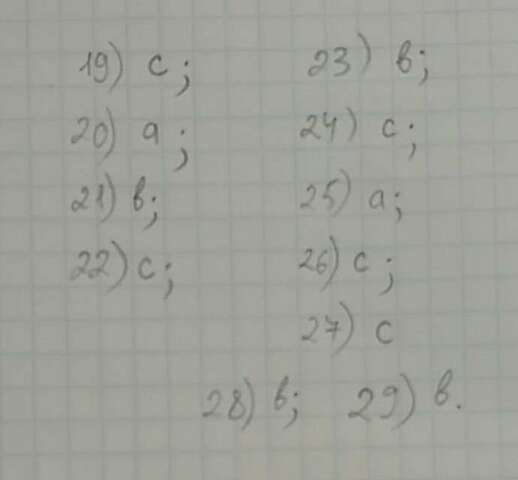 19) c; 23) b;
20) a; 24) c;
21) b; 25) a;
22) c; 26) c;
27) c
28) b; 29) b.